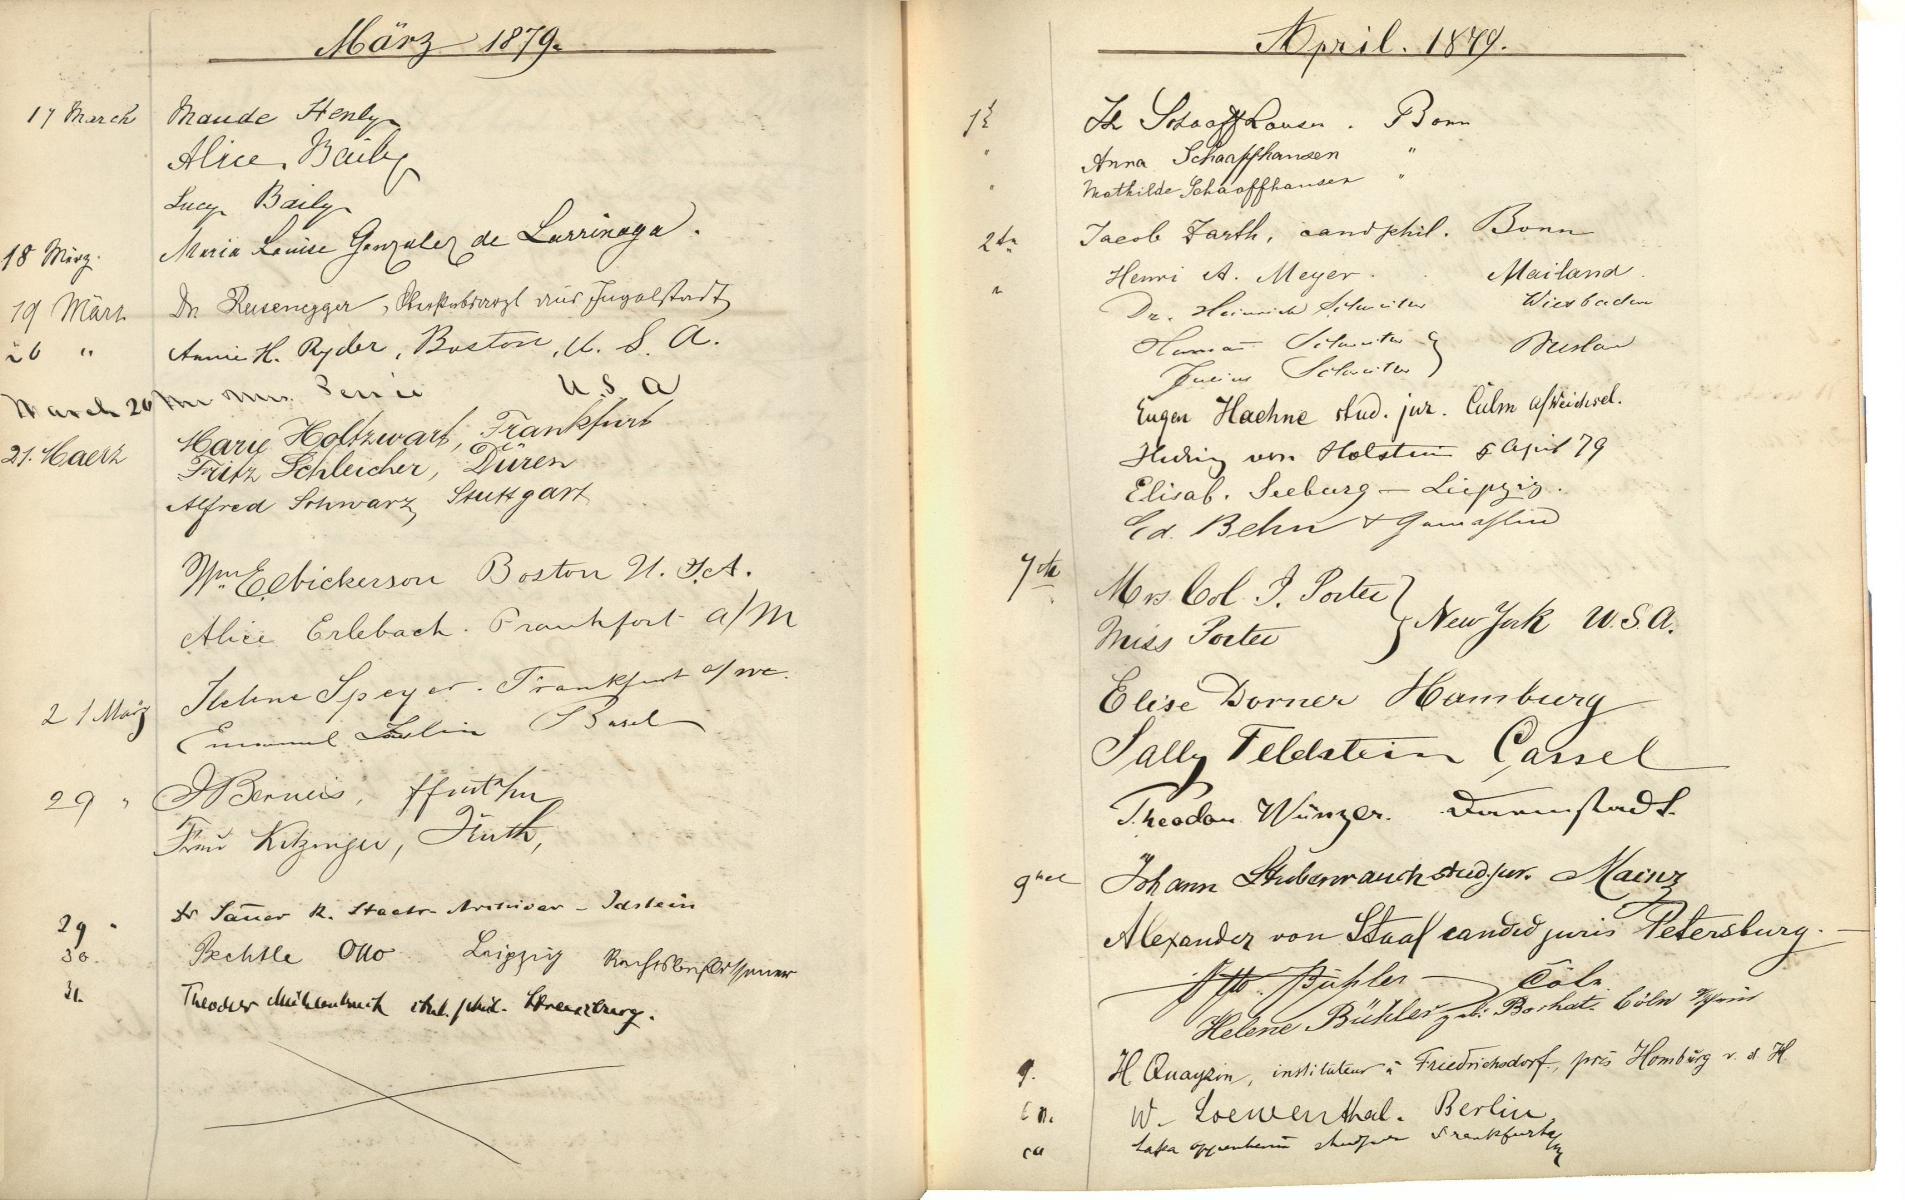 März 1879.
17 March Maude Henly
Alice Baily
Lucy Baily
18 März. Maria Louise Gonzalez de Larrinaga.
19 März Dr. Reisenegger, aus Ingolstadt
20 " Annie H. Ryder, Boston, U. S. A.
March 20 Mr Mrs. U.S A
Marie Holtzwart, Frankfurt
21. Maerz Fritz Schleicher, Düren
Alfred Schwarz, Stuttgart
Wm E. Nickerson Boston U. S. A.
Alice Erlebach. Frankfort a/M
Helene Speyer. Frankfurt a/M.
21 März Emanuel Basel
29 " Berneis, Ffurt a/m
Frau Kitzinger, Fürth,
29 " Dr Sauer K. Staats-Archivar - Idstein
30. Bechtle Otto Leipzig
31. Theodor Mühlenbruch stud. phil. Strassburg.
April. 1879.
1t H Schaaffhausen. Bonn
" Anna Schaaffhausen "
" Mathilde Schaaffhausen "
2tn Jacob Zarth, cand phil. Bonn
" Henri A. Meyer. Mailand.
Dr. Heinrich Wiesbaden
Breslau
Julius
Eugen Haehne stud. jur. Culm a/Weichsel.
Hedwig von Holstein 5 April 79
Elisab. Seeburg – Leipzig.
Ed. Behn & Gemahlin
7th Mrs Col. J. Porter
Miss Porter } New York U.S.A.
Elise Dorner Hamburg
Sally Feldstein Cassel
Theodor Wünzer. Darmstadt.
Johann Stubenrauch stud. jur. Mainz
Alexander von Staal canded juris Petersburg. –
Otto Bühler – Cöln
Helene Bühler geb: Cöln a/Rhein
9. H Quayzin, instituteur à Friedrichsdorf, près Homburg v. d. H.
W. Loewenthal. Berlin.
Oppenheim stud jur Frankfurt a/M